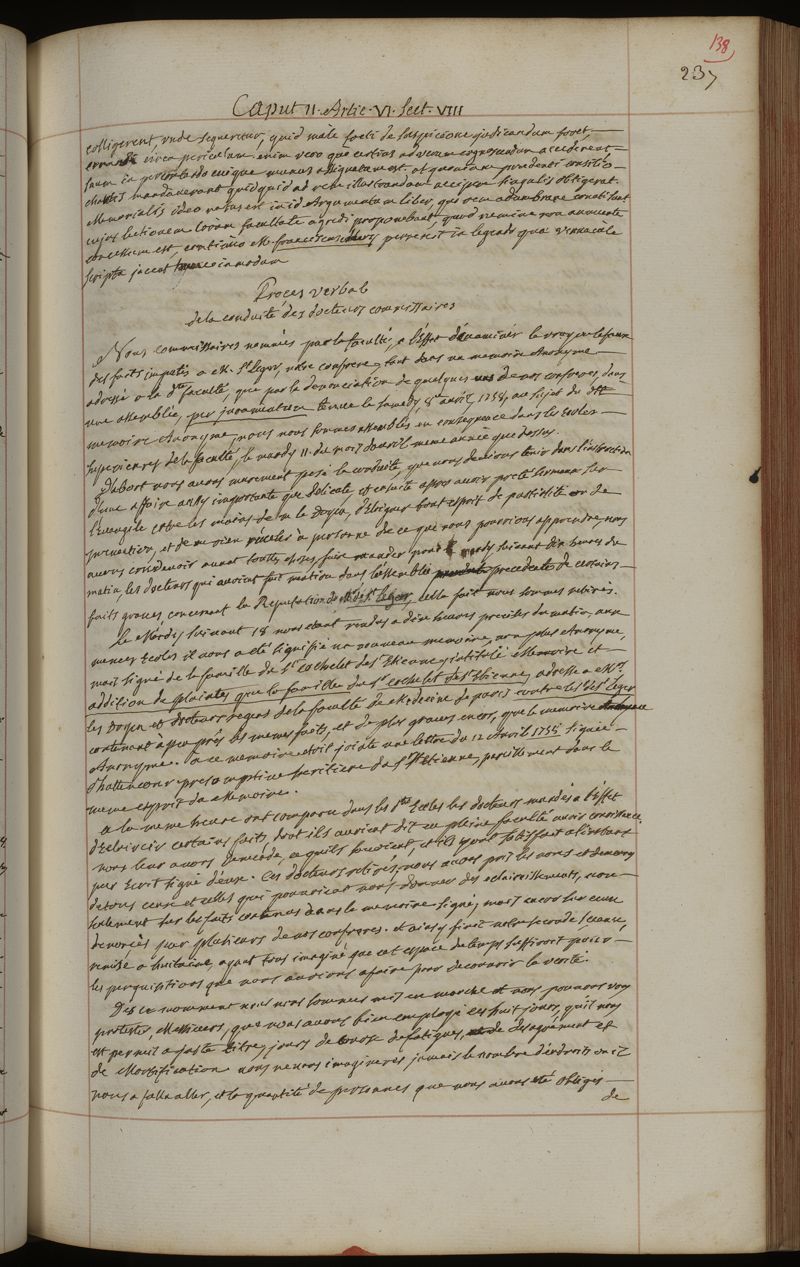 138
237
Caput II. Artic. VI. Sect. VIII
colligerent, unde sequeretur, quid male facti de suspicione judicandum foret,
circa periculum enim vero quo certius ad verum cognoscendum accederent,
suum in percontando cuique munus assignatum est, atquetam prudenti consilio
chartis mandaverant quidquid ad rem illustrandam accipere singulis obtigerat.
Memorialis ideo natus est in id argumentum liber, quo rem adumbrare conati sunt
cujus lectionem coram facultate agredi proponebant, quod nemine non annuente
concessum est, continuo M. franciscus perrexit in legendo qua vernacule
scripta jacent hunce in modum
Proces verbal
de la conduite des docteurs commissaires
Nous commissaires nommés par la faculté, a l'Effet d'Examiner le vray ou le faux
des faits imputés a M. St. leger, notre confrere, tant dans un memoire Anonyme
adressé a la dte faculté, que par la denonciation de quelques uns de nos confreres, dans
une assemblée, per juramentum tenue le samedy, 8 avril 1758, au sujet du dit
memoire Anonyme, nous nous sommes assemblés en consequence dans les Ecoles
superieures de la faculté, le mardy 11. du mois d'avril meme année que dessus.
D'abort nous avons murement pesé la conduite, que nous devions tenir dans l'instruction
d'une affaire aussy importante que delicate, et ensuite apres avoir preté serment sur
l'Evangile entre les mains de m. le Doyen, d'Eloigner tout esprit de partialité ou de
prevention, et de ne rien réveler à personne de ce que nous pourrions apprendre, nous
avons cru devoir avant toutes choses, faire mander pour mardy suivant dix heures du
matin, les docteurs qui avoient fait mention dans l'assemblée precedente de certains
faits graves concernant la Reputation de M. de St. leger, cella fait nous sommes retirés.
le Mardy suivant 18 nous etant rendus a dix heures precises du matin, aux
memes Ecoles il nous a eté signifié un nouveau memoire, non plus Anonyme,
mais signé de la famille du Sr. cochelet de St. Etienne, intitulé Memoire et
addition de plaintes que la famille du Sr. cochelet de St. Etienne, adresse a Mrs.
les Doyen et docteurs regens de la faculté de Medecine de paris contre le Sr. de St. leger
contenant a peu près les memes faits, et de plus graves encor, que le memoire
Anonyme. a ce memoire etoit jointe une lettre du 12 Avril 1758 signée
d'hattencour presomptive heritiere du Sr. St. Etienne, pareillement dans le
meme esprit du Memoire.
a la meme heure ont comparu dans les dtes Ecoles les docteurs mandés a l'effet
d'Eclaircir certains faits, dont ils avoient dit en pleine faculté avoir connoissance,
nous leur avons demandé, ce qu'ils sçavoient, et ils y ont satisfait a l'instant
par Ecrit signé d'eux. Ces docteurs retirés, nous avons pris les noms et demeures
de tous ceux et celles qui pouvoient nous donner des eclaircissements, non
seulement sur les faits contenus dans le memoire signé, mais encor sur ceux
denoncés par plusieurs de nos confreres. et ainsy finit notre seconde seance,
remise a huitaine, ayant tous imaginé que cet espace de temps suffiroit pour
les perquisitions que nous aurions a faire pour decouvrir la verité.
Dés ce moment nous nous sommes mis en marche et nous pouvons vous
protester, Messieurs, que nous avons bien employé ces huit jours, qu'il nous
est permis a juste titre, jours de course de fatigues, de desagrément et
de Mortification vous ne vous imagineres jamais le nombre d'endroits ou il
nous a fallu aller, et la quantité de personnes que nous avons eté obligés
de